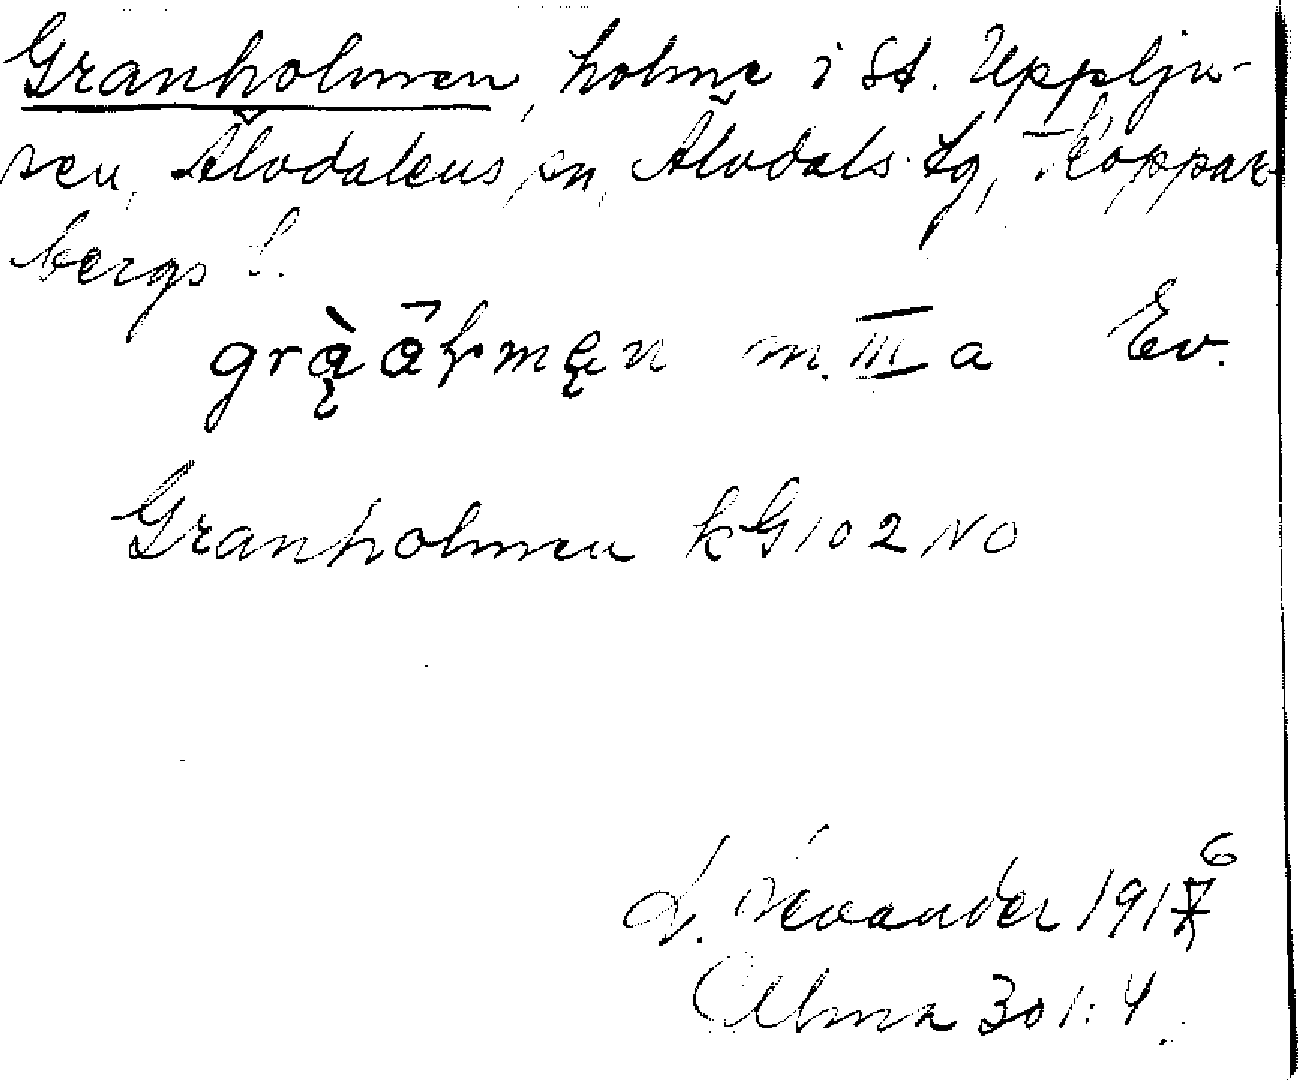 Granholmen, holme i St. Uppljusen
sen, Älvdalens sn, Älvdals tg, Koppar-
bergs l.
m. III a Ev.
Granholmen kG 102 NO
L. Levander 1916
Ulma 301:4.